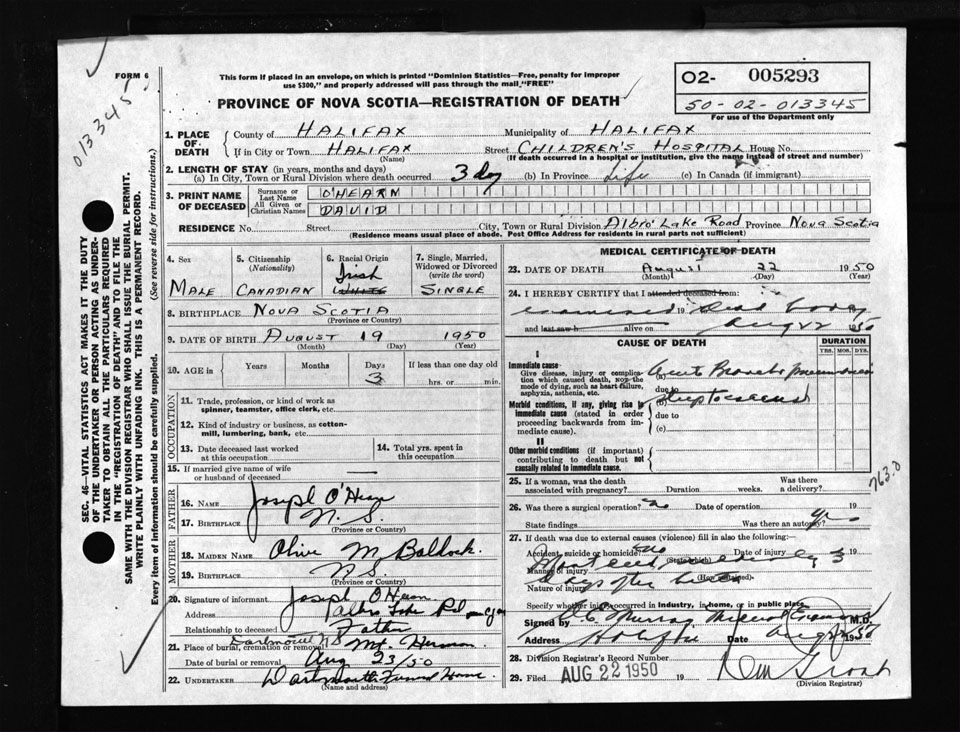 FORM 6
013345
This form if placed in an envelope, on which is printed "Dominion Statistics—Free, penalty for improper
use $300," and properly addressed will pass through the mail "FREE"
PROVINCE OF NOVA SCOTIA—REGISTRATION OF DEATH
02- 005293
50-02-013345
For use of the Department only
SEC. 46—VITAL STATISTICS ACT MAKES IT THE DUTY
OF THE UNDERTAKER OR PERSON ACTING AS UNDER-
TAKER TO OBTAIN ALL THE PARTICULARS REQUIRED
IN THE "REGISTRATION OF DEATH" AND TO FILE THE
SAME WITH THE DIVISION REGISTRAR WHO SHALL ISSUE THE BURIAL PERMIT.
WRITE PLAINLY WITH UNFADING INK. THIS IS A PERMANENT RECORD.
Every item of information should be carefully supplied. (See reverse side for instructions.)
1. PLACE OF DEATH County of HALIFAX Municipality of HALIFAX
If in City or Town HALIFAX (Name) Street CHILDREN'S HOSPITAL House No.
(If death occurred in a hospital or institution, give the name instead of street and number)
2. LENGTH OF STAY (in years, months and days)
(a) In City, Town or Rural Division where death occurred 3 day (b) In Province Life (c) In Canada (if immigrant)
3. PRINT NAME OF DECEASED Surname or Last Name O'HEARN
All Given or Christian Names DAVID
RESIDENCE No. Street City, Town or Rural Division Albro Lake Road Province Nova Scotia
(Residence means usual place of abode. Post Office Address for residents in rural parts not sufficient)
4. SEX MALE
5. CITIZENSHIP (Nationality) CANADIAN
6. Racial Origin Irish WHITE
7. Single, Married, Widowed or Divorced (write the word) SINGLE
8. BIRTHPLACE NOVA SCOTIA
(Province or Country)
9. DATE OF BIRTH AUGUST 19 1950
(Month) (Day) (Year)
10. AGE IN Years Months Days 3 If less than one day hrs. or min.
OCCUPATION
11. Trade, profession, or kind of work as
spinner, teamster, office clerk, etc.
12. Kind of industry or business, as cotton-
mill, lumbering, bank, etc.
13. Date deceased last worked
at this occupation
14. Total yrs. spent in
this occupation
15. If married give name of wife
or husband of deceased
FATHER
16. NAME Joseph O'Hearn
17. BIRTHPLACE N.S.
(Province or Country)
MOTHER
18. MAIDEN NAME Olive M
19. BIRTHPLACE N.S.
(Province or Country)
20. Signature of informant Joseph O'Hearn
Address Albro Lake Rd
Relationship to deceased Father
21. Place of burial, cremation or removal Dartmouth NS Mt. Hermon
Date of burial or removal Aug 23/50
22. UNDERTAKER Dartmouth Funeral Home
(Name and address)
MEDICAL CERTIFICATE OF DEATH
23. DATE OF DEATH August 22 1950
(Month) (Day) (Year)
24. I HEREBY CERTIFY that I attended deceased from:
examined 19 dead body
and last saw h alive on Aug 22 1950
CAUSE OF DEATH
DURATION
YRS. MOS. DYS.
I
Immediate cause:
Give disease, injury or complica-
tion which caused death, NOT the
mode of dying, such as heart failure,
asphyxia, asthenia, etc.
(a) Acute Broncho pneumonia
due to
Morbid conditions, if any, giving rise to
immediate cause (stated in order
proceeding backwards from im-
mediate cause).
(b) Streptococcus
due to
(c)
II
Other morbid conditions (if important)
contributing to death but not
causally related to immediate cause.
763.0
25. If a woman, was the death
associated with pregnancy? Duration weeks. Was there
a delivery?
26. Was there a surgical operation? no Date of operation 19
State findings Was there an autopsy? yes
27. If death was due to external causes (violence) fill in also the following:
Accident, suicide or homicide? Date of injury 19
(State which)
Manner of injury
(How sustained)
Nature of injury
Specify whether injury occurred in industry, in home, or in public place
Signed by Murray Medical M.D.
Address Halifax Date Aug 1950
28. Division Registrar's Record Number
29. Filed AUG 22 1950 19
(Division Registrar)